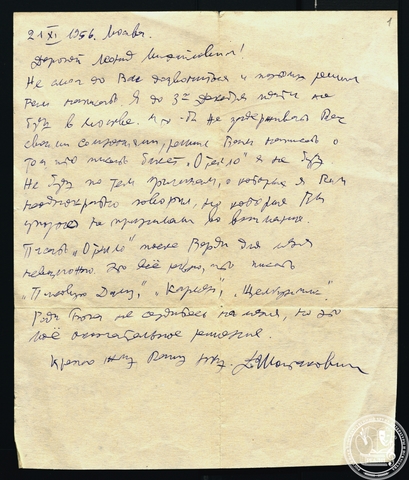 1
21 XI 1956. Москва.
Дорогой Леонид Михайлович!
Не смог до Вас дозвониться и поэтому решил
Вам написать. Я до 3го декабря не
буду в Москве. Что-бы не задерживать Вас
своими решил Вам написать о
том что писать балет „Отелло" я не буду
Не буду по тем причинам, о которых я Вам
неоднократно говорил, но которые Вы
упорно не принимали во внимание.
Писать „Отелло" после Верди для меня
невозможно. Это всё равно, что писать
„Пиковую Даму", „Кармен", „Щелкунчик".
Ради Бога не сердитесь на меня, но это
моё окончательное решение.
Крепко жму Вашу руку. ДШостакович